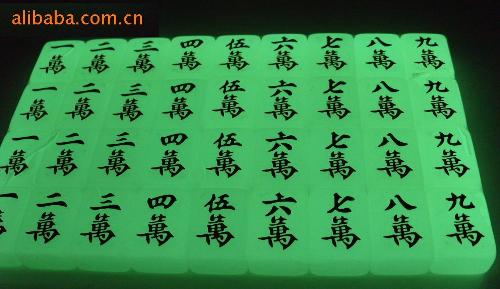 alibaba.com.cn
一 二 三 四 伍 六 七 八 九
萬 萬 萬 萬 萬 萬 萬 萬 萬
一 二 三 四 伍 六 七 八 九
萬 萬 萬 萬 萬 萬 萬 萬 萬
一 二 三 四 伍 六 七 八 九
萬 萬 萬 萬 萬 萬 萬 萬 萬
一 二 三 四 伍 六 七 八 九
萬 萬 萬 萬 萬 萬 萬 萬 萬